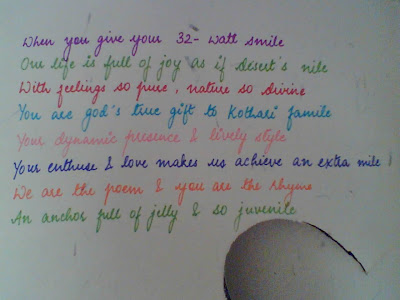 When you give your 32- Watt smile
Our life is full of joy as if desert's nile
With feelings so pure, nature so divine
You are god's true gift to Kothari famile
Your dynamic presence & lively style
Your enthuse & love makes us achieve an extra mile!
We are the poem & you are the rhyme
An anchor full of jelly & so juvenile